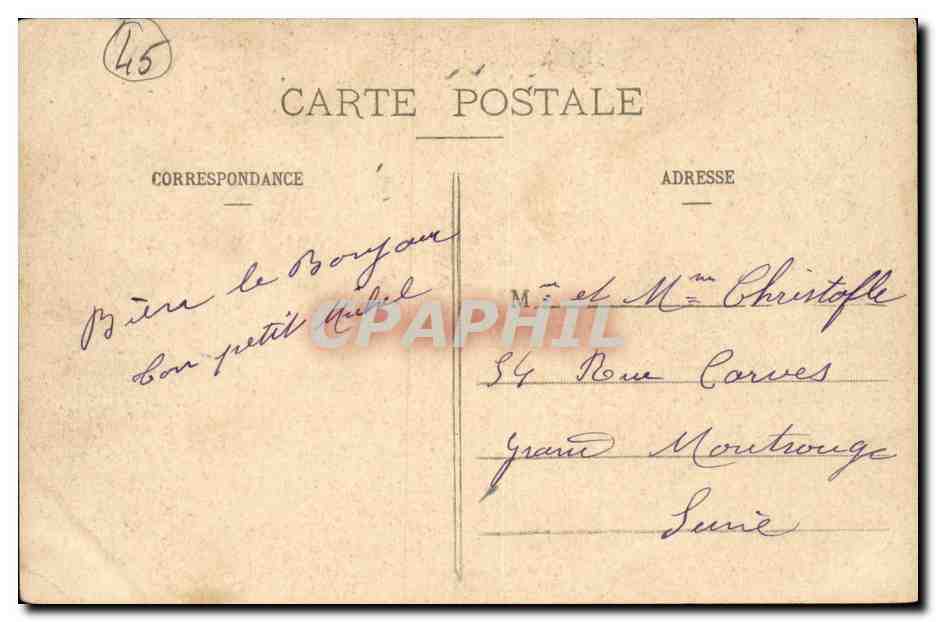 45
CARTE POSTALE
CORRESPONDANCE
Bien le Bonjour
ton petit Michel
ADRESSE
Mr et Mme Christofle
54 Rue Carves
Grand Montrouge
Seine
CPAPHIL